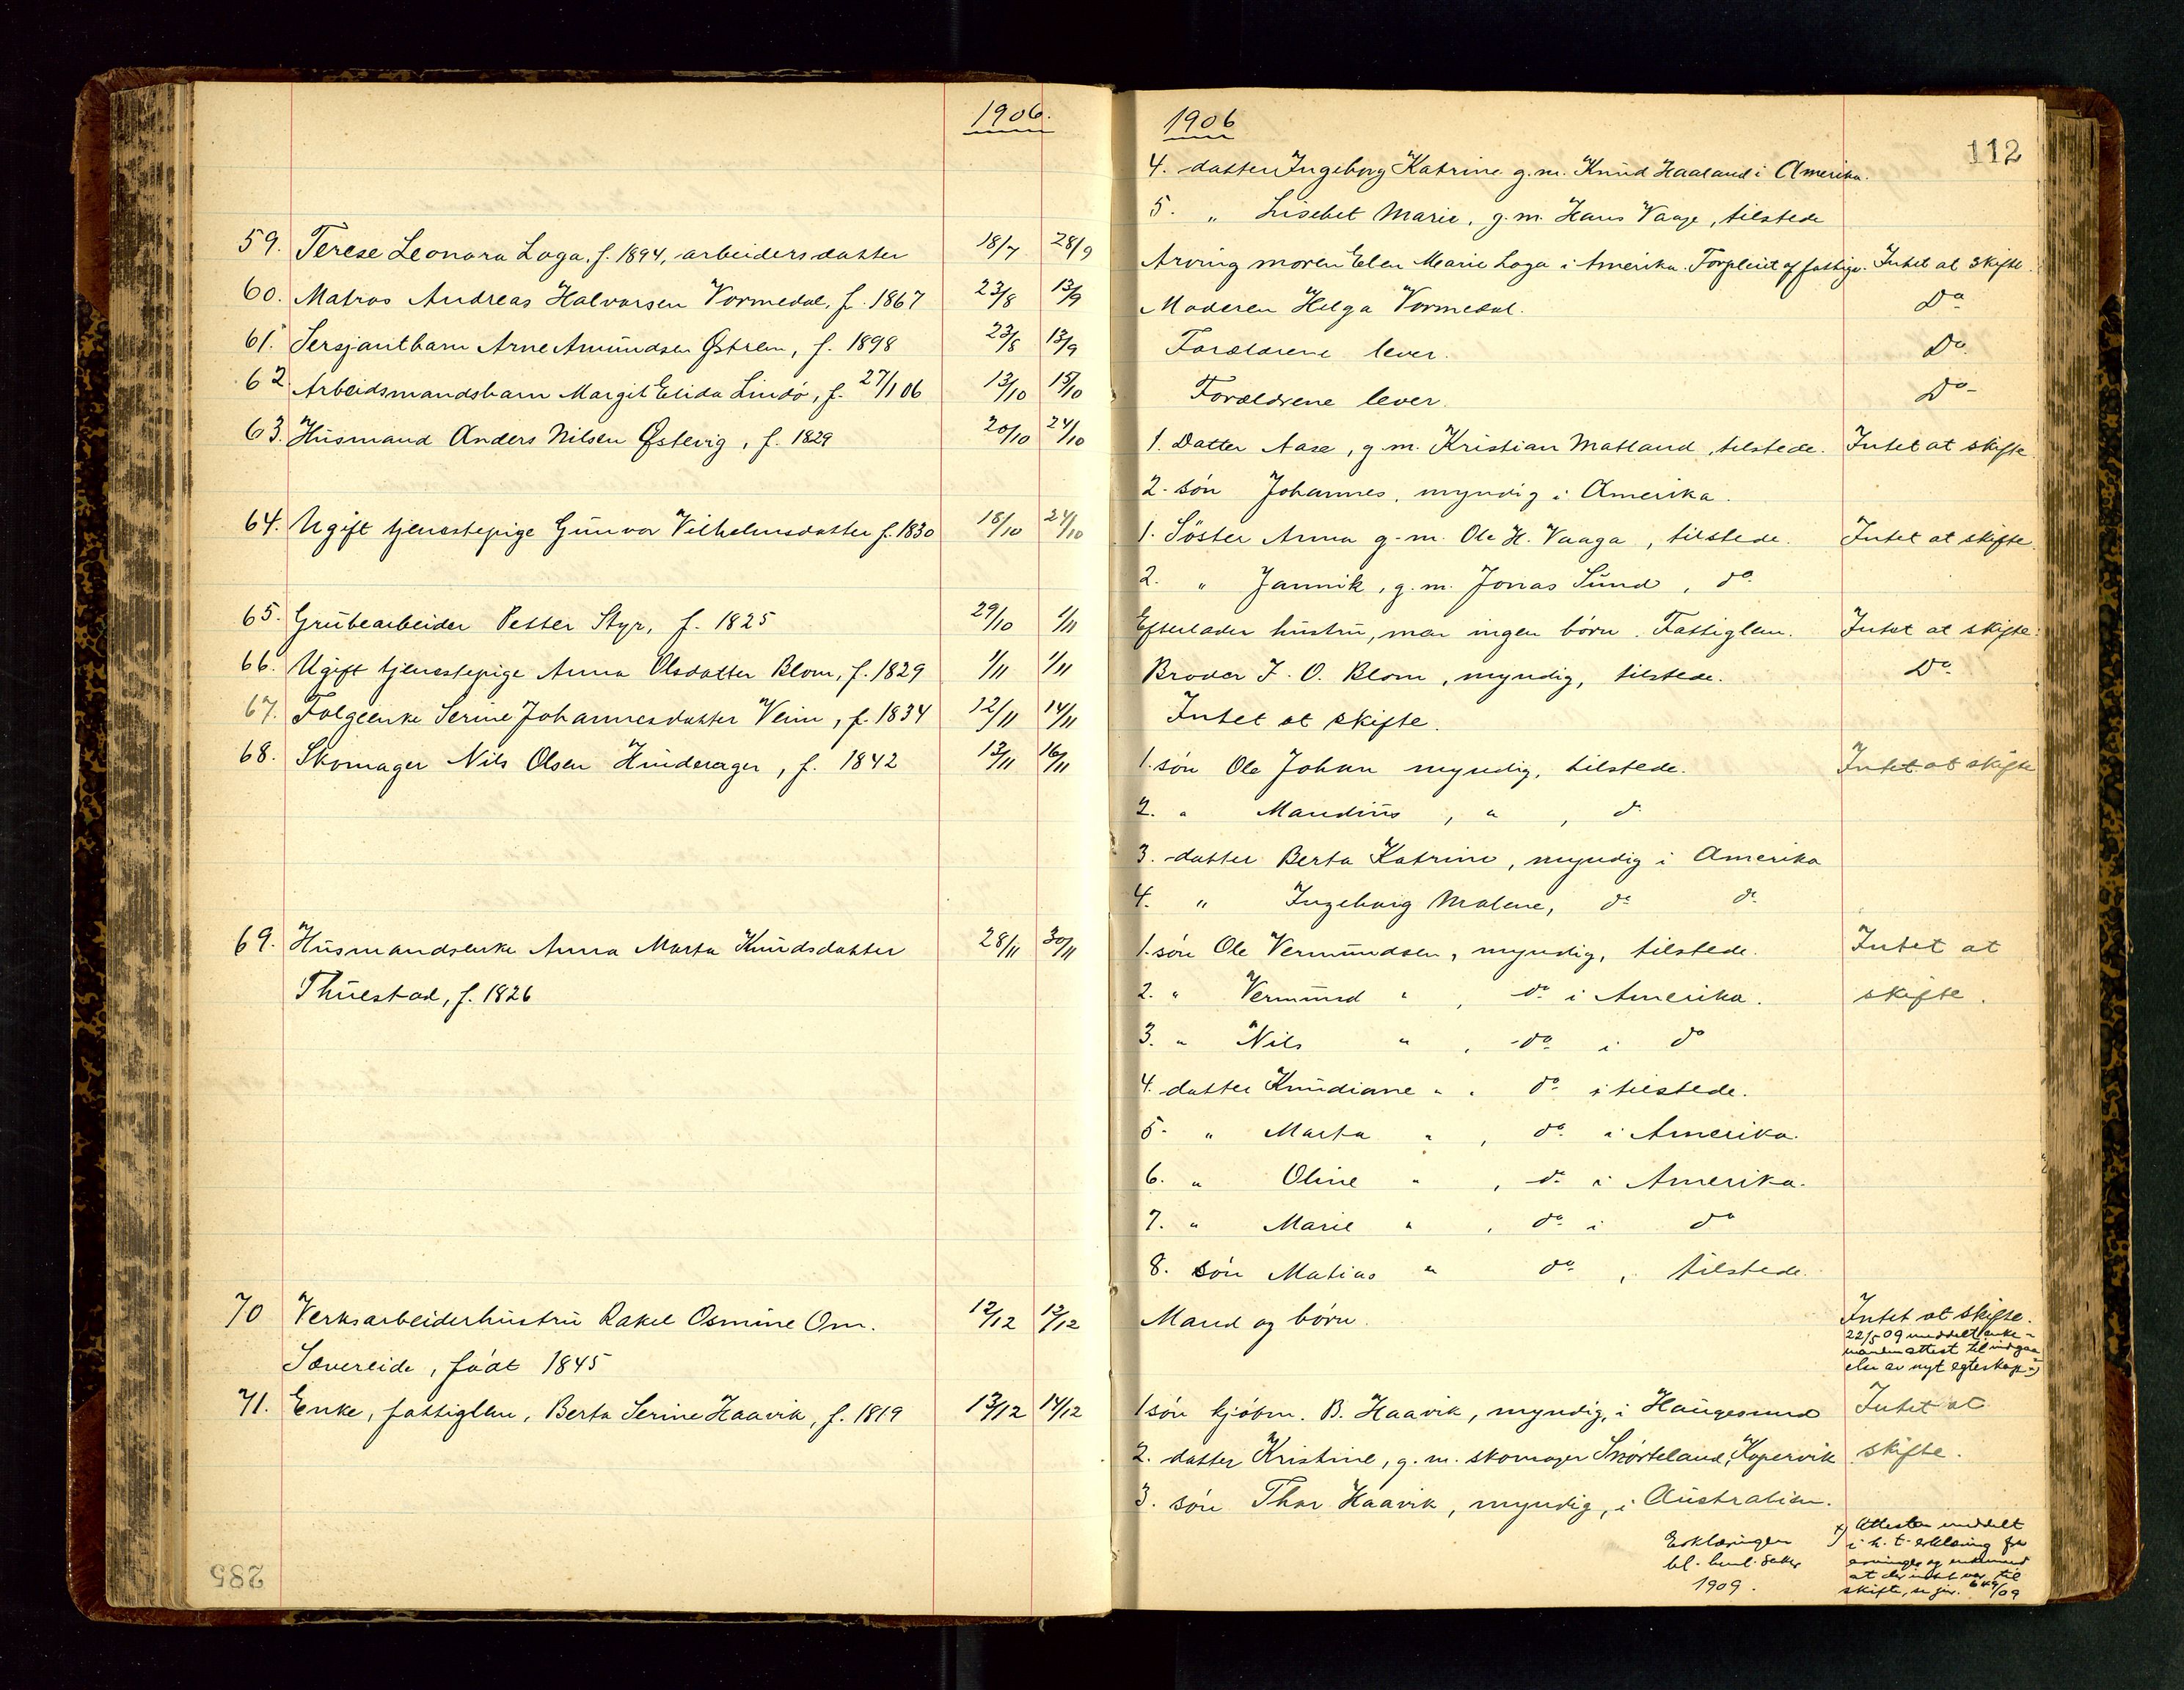 1906.
59. Terese Leonara Loga, f. 1894, arbeidersdatter 18/7 28/9
60. Matros Andreas Halvorsen Vormedal, f. 1867 23/8 13/9
61. Sersjantbarn Arne Amundsen Østrem, f. 1898 23/8 13/9
62 Arbeidsmandsbarn Margit Elida Lindö, f. 27/1 06 13/10 15/10
63. Husmand Anders Nilsen Østevig, f. 1829 20/10 24/10
64. Ugift tjenestepige Gunvor Vilhelmsdatter f. 1830 18/10 24/10
65. Grubearbeider Petter Styr, f. 1825 29/10 1/11
66. Ugift tjenestepige Anna Olsdatter Blom, f. 1829 1/11 1/11
67. Folgeenke Serine Johannesdatter Veim, f. 1834 12/11 14/11
68. Skomager Nils Olsen Hinderager, f. 1842 13/11 16/11
69. Husmandsenke Anna Marta Knudsdatter 28/11 30/11
Thuestad, f. 1826
70 Verksarbeiderhustru Rakel Osmine Om. 12/12 12/12
Sævereide, født 1845
71. Enke, fattiglem, Berta Serine Haavik, f. 1819 13/12 14/12
285
1906
112
4. datter Ingeborg Katrine g.m. Knud Haaland i Amerika.
5. " Lisebet Marie, g.m. Hans Vaage, tilstede
Arving moren Elen Marie Loga i Amerika. Forpleiet af fattigv. Intet at skifte.
Moderen Helga Vormedal. Do
Forældrene lever. Do.
Forældrene lever. Do
1. Datter Aase, g.m. Kristian Matland, tilstede. Intet at skifte.
2. sön Johannes, myndig i Amerika.
1. Söster Anna g.m. Ole H. Vaaga, tilstede. Intet at skifte.
2. " Jannik, g.m. Jonas Sund, do.
Efterlader hustru, men ingen börn. Fattiglem. Intet at skifte.
Broder J. O. Blom, myndig, tilstede. Do.
Intet at skifte.
1. sön Ole Johan myndig, tilstede. Intet at skifte
2. " Mandius, ", do
3. datter Berta Katrine, myndig i Amerika
4. " Ingeborg Malene, do do.
1. sön Ole Vermundsen, myndig, tilstede. Intet at
2. " Vermund " , do i Amerika. skifte.
3. " Nils " , do. i do
4. datter Knudiane " , do i tilstede.
5. " Marta " , do. i Amerika.
6. " Oline " , do. i Amerika.
7. " Marie " , do. i do
8. sön Matias " do. , tilstede.
Mand og börn. Intet at skifte.
22/5 09 meddelt enke-
manden attest til indgaa
else av nyt egteskap x)
1 sön kjöbm. B. Haavik, myndig, i Haugesund Intet at
2. datter Kristine, g.m. skomager Snörteland, Kopervik skifte.
3. sön Thor Haavik, myndig, i Australien.
Erklæringen
bl. henl. saker
1909.
x) Attesten meddelt
i h. t. erklæring fra
arvinger og enkemand
at der intet var til
skifte, se jnr. 649/09